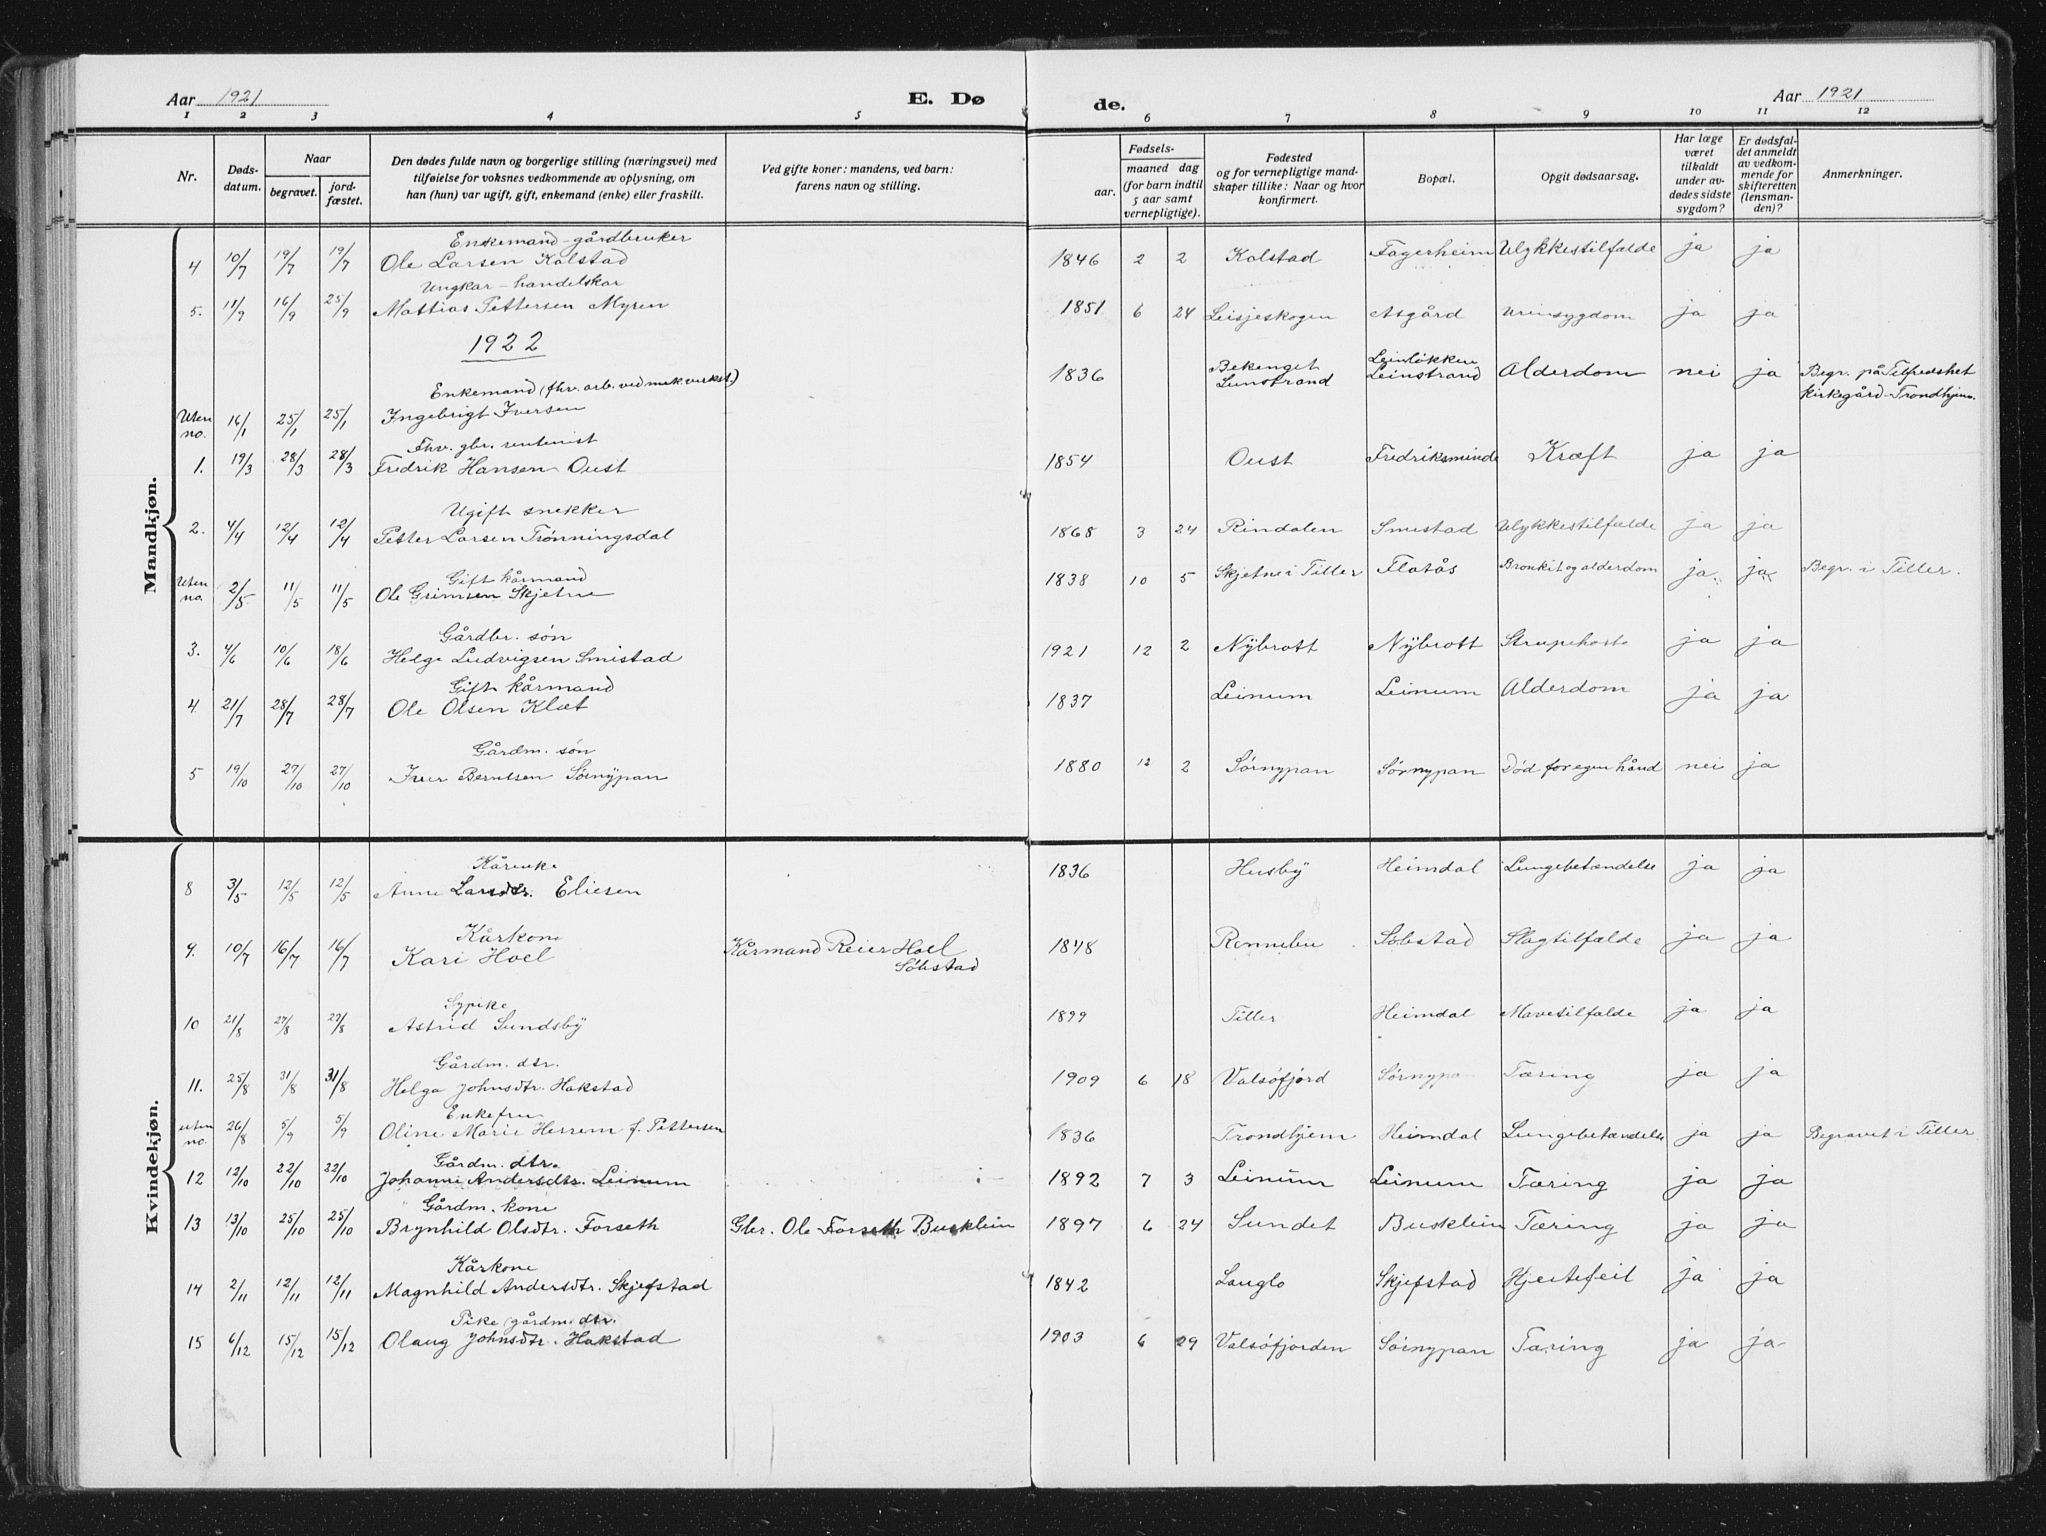 Aar 1921 E. Dø de. Aar 1921
1 2 3 4 5 6 7 8 9 10 11 12
Nr. Døds-datum. Naar begravet. jord-fæstet. Den dødes fulde navn og borgerlige stilling (næringsvei) med tilføielse for voksnes vedkommende av oplysning, om han (hun) var ugift, gift, enkemand (enke) eller fraskilt. Ved gifte koner: mandens, ved barn: farens navn og stilling. Fødsels- aar. maaned dag (for barn indtil 5 aar samt vernepligtige). Fødested og for vernepligtige mand-skaper tillike: Naar og hvor konfirmert. Bopæl. Opgit dødsaarsag. Har læge været tilkaldt under av-dødes sidste sygdom? Er dødsfal-det anmeldt av vedkom-mende for skifteretten (lensman-den)? Anmerkninger.
Mandkjøn.
Enkemand - gårdbruker
4 10/7 19/7 19/7 Ole Larsen Kolstad 1846 2 2 Kolstad Fagerheim Ulykkestilfælde ja ja
Ungkar - handelskar
5. 11/9 16/9 25/9 Mattias Pettersen Myren 1851 6 24 Leisjeskogen Asgård Urinsygdom ja ja
1922
Enkemand (fhv. arb. ved mek. verkst.)
Uten no. 16/1 25/1 25/1 Ingebrigt Iversen 1836 Bekenget Leinstrand Leinløkken Leinstrand Alderdom nei ja Begr. på Tilfredshet kirkegård - Trondhjem.
Fhv. gbr. rentenist
1. 19/3 28/3 28/3 Fredrik Hansen Oust 1854 Oust Fredriksminde Kræft ja ja
Ugift snekker
2. 4/4 12/4 12/4 Petter Larsen Trønningsdal 1868 3 24 Rindalen Smestad Ulykkestilfælde ja ja
Gift kårmand
Uten no. 2/5 11/5 11/5 Ole Grimsen Skjetne 1838 10 5 Skjetne i Tiller Flatås Bronkit og alderdom ja ja Begr. i Tiller.
Gårdbr. søn
3. 4/6 10/6 18/6 Helge Ludvigsen Smistad 1921 12 2 Nybrott Nybrott Strupehoste ja ja
Gift kårmand
4 21/7 28/7 28/7 Ole Olsen Klæt 1837 Leinum Leinum Alderdom ja ja
Gårdm. søn
5 19/10 27/10 27/10 Iver Berntsen Sørnypan 1880 12 2 Sørnypan Sørnypan Død for egen hånd nei ja
Kvindekjøn.
Kårenke
8 3/5 12/5 12/5 Anne Larsdtr. Eliesen 1836 Husby Heimdal Lungebetændelse ja ja
Kårkone
9. 10/7 16/7 16/7 Kari Hoel Kårmand Reier Hoel Søbstad 1848 Rennebu Søbstad Slagtilfælde ja ja
Sypike
10 21/8 27/8 27/8 Astrid Sundsby 1899 Tiller Heimdal Mavetilfælde ja ja
Gårdm. dtr.
11. 25/8 31/8 31/8 Helga Johnsdtr. Hakstad 1909 6 18 Valsøfjord Sørnypan Tæring ja ja
Enkefru
uten no. 26/8 5/9 5/9 Oline Marie Herrem f. Pettersen 1836 Trondhjem Heimdal Lungebetændelse ja ja Begravet i Tiller
Gårdm. dtr.
12 12/10 22/10 22/10 Johanne Andersdtr. Leinum 1892 7 3 Leinum Leinum Tæring ja ja
Gårdm. kone
13 13/10 25/10 25/10 Brynhild Olsdtr. Forseth Gbr. Ole Forseth Busklein 1897 6 24 Sundet Busklein Tæring ja ja
Kårkone
14 2/11 12/11 12/11 Magnhild Andersdtr. Skjefstad 1842 Langlo Skjefstad Hjertefeil ja ja
Pike (gårdm. dtr.
15 6/12 15/12 15/12 Olaug Johnsdtr. Hakstad 1903 6 29 Valsøfjorden Sørnypan Tæring ja ja